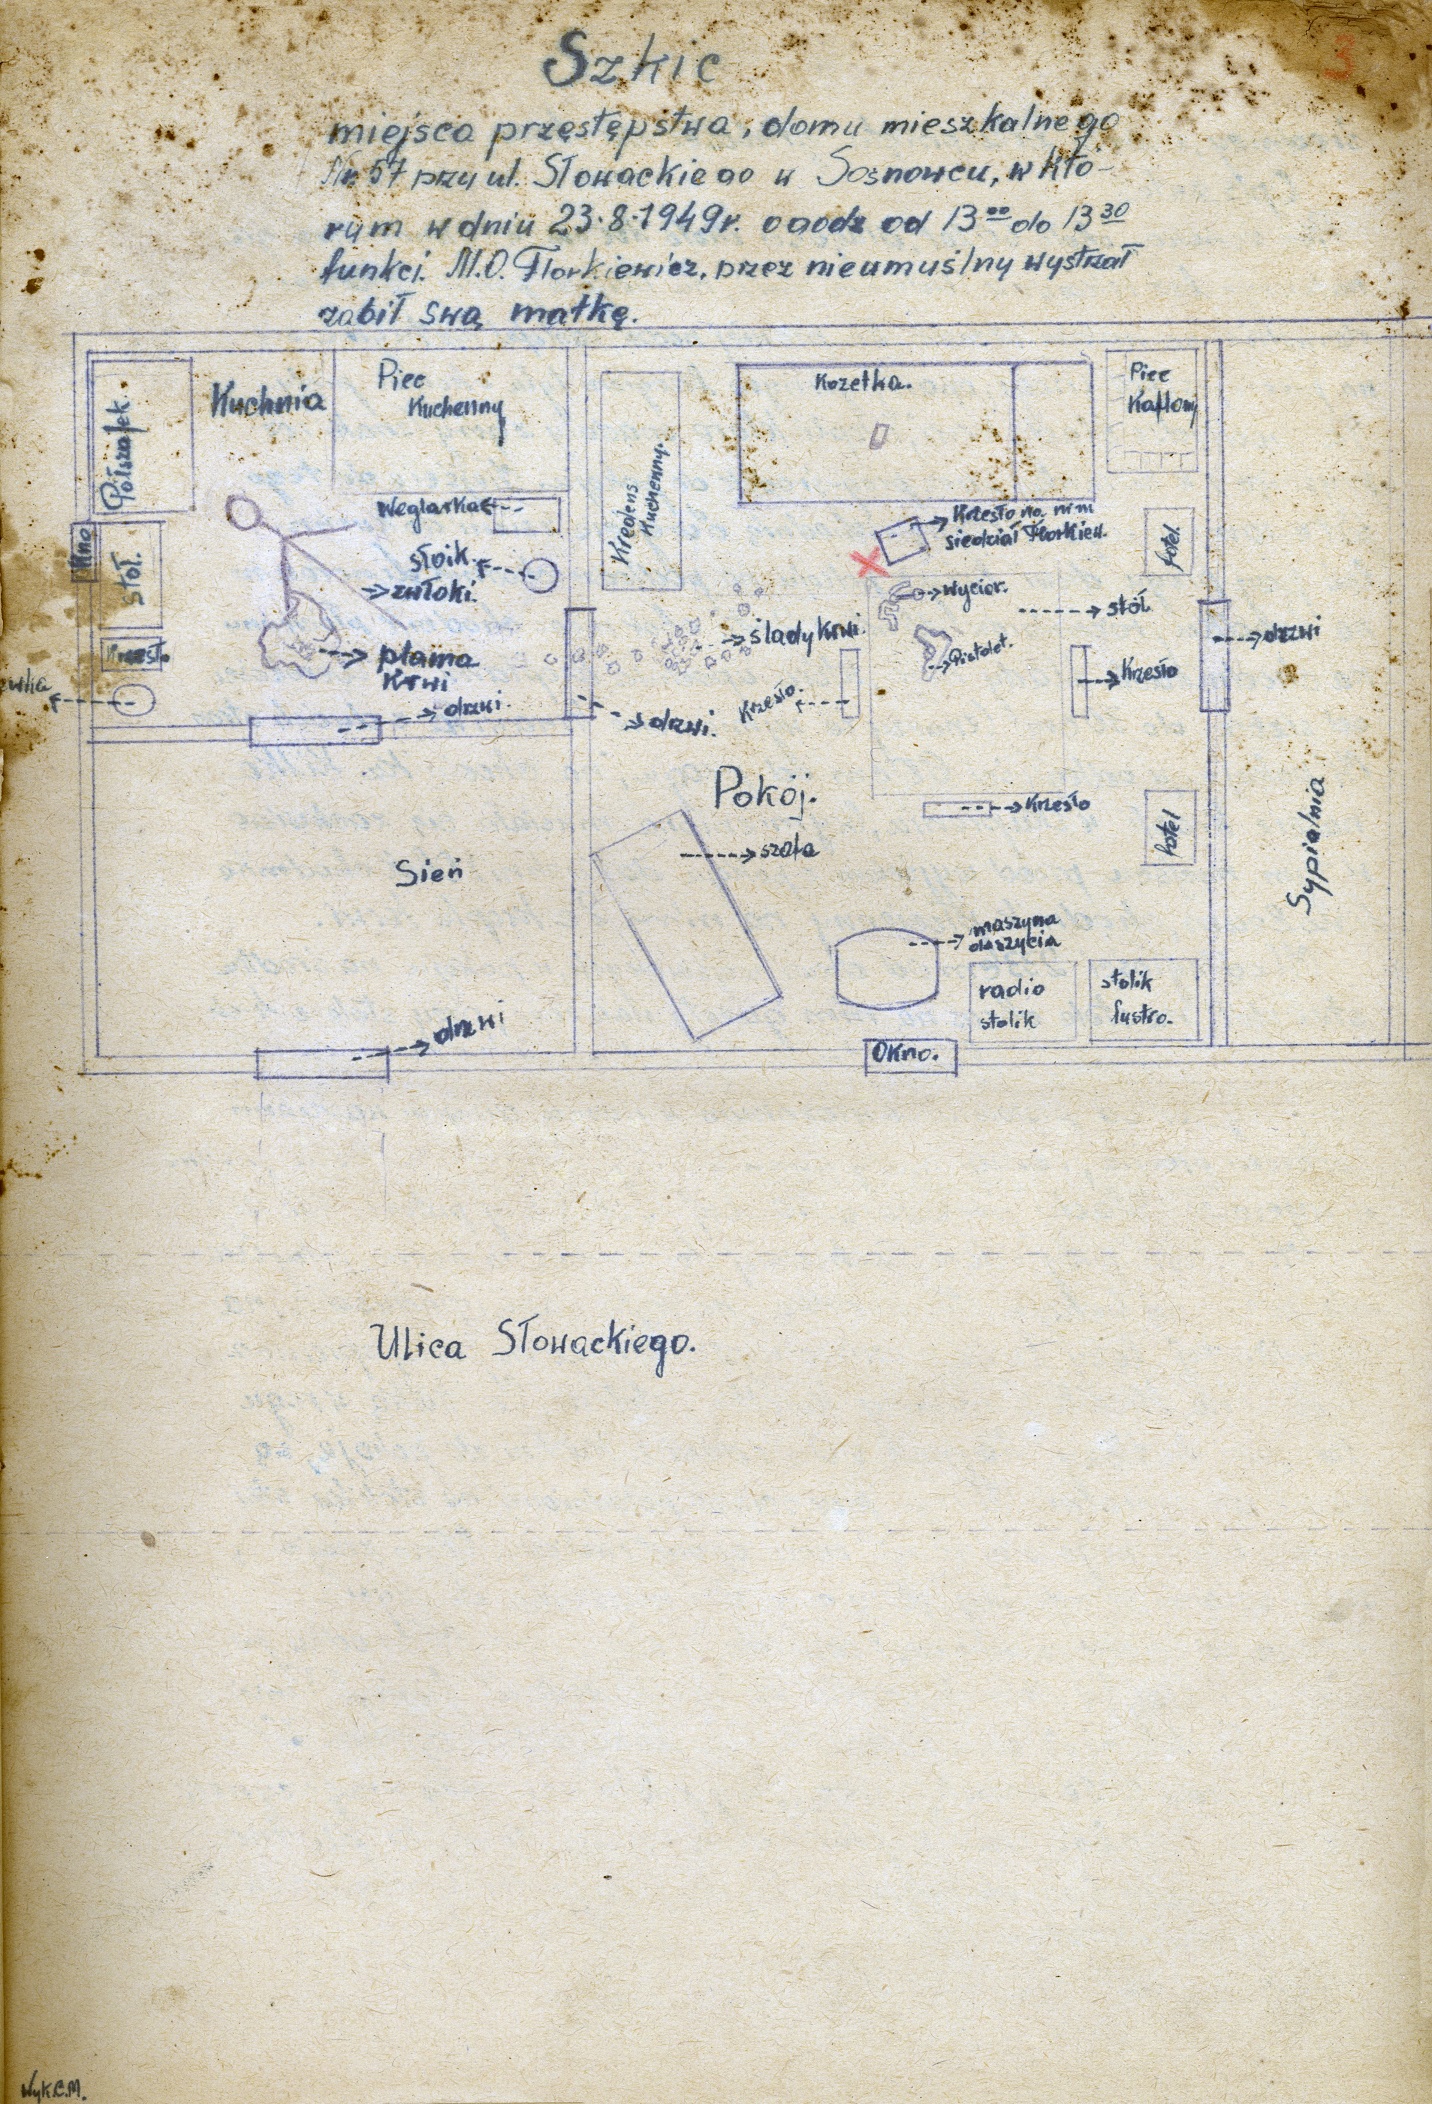 3
Szkic
miejsca przestępstwa, domu mieszkalnego
Nr. 57 przy ul. Słowackiego w Sosnowcu, w któ-
rym w dniu 23.8.1949r. o godz od 13⁰⁰ do 13³⁰
funkcj. M.O. Florkiewicz, przez nieumuślny wystrzał
zabił swą matkę.
Półszafek.
Kuchnia
Piec
Kuchenny
Kredens
Kuchenny.
Kozetka.
Piec
Kaflowy
Węglarka
słoik
zwłoki.
Okno
stół.
Krzesło
plama
Krwi
drzwi.
drzwi.
ślady krwi.
Krzesło na nim
siedział Florkiew.
fotel.
wycior.
stół
Pistolet.
Krzesło.
Krzesło
drzwi
Pokój.
Krzesło
fotel
Sypialnia
szafa
Sień
maszyna
do szycia
radio
stolik
stolik
lustro.
drzwi
Okno.
Ulica Słowackiego.
Wyk.C.M.